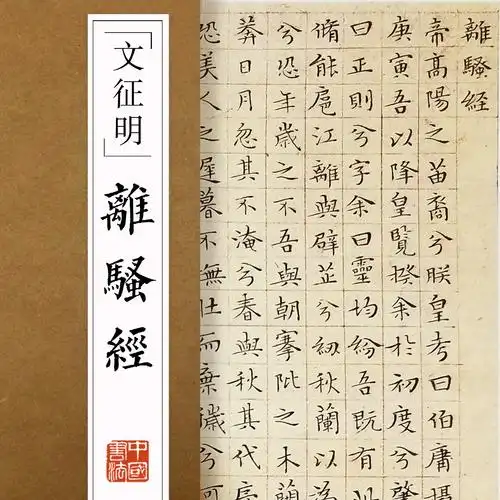 「文征明」
離騷經
中國
書法
離騷經
帝高陽之苗裔兮朕皇考曰伯庸攝
庚寅吾以降皇覽揆余於初度兮肇
曰正則兮字余曰靈均紛吾既有
脩能扈江離與辟芷兮紉秋蘭以為
兮恐年歲之不吾與朝搴阰之木蘭
莽日月忽其不淹兮春與秋其代序
恐美人之遲暮不撫壯而棄穢兮何